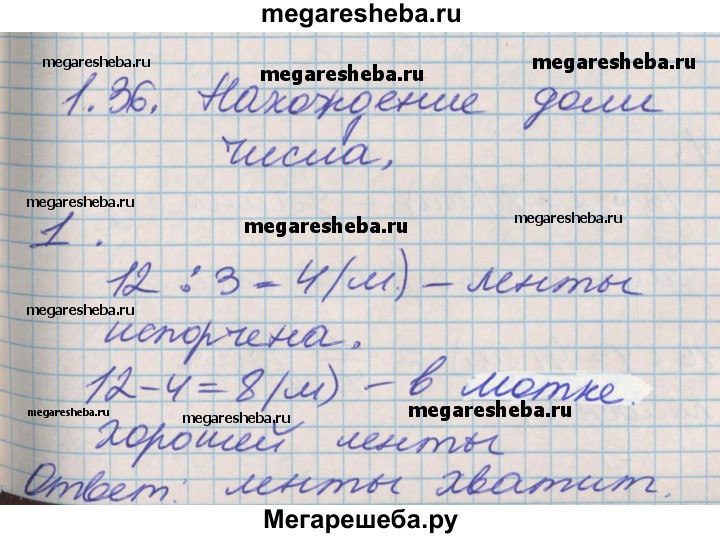 megaresheba.ru
megaresheba.ru
megaresheba.ru
megaresheba.ru
1.36. Нахождение доли
числа.
megaresheba.ru
megaresheba.ru
megaresheba.ru
1.
12 : 3 = 4 (м) – ленты
megaresheba.ru
испорчена.
12 – 4 = 8 (м) – в мотке.
megaresheba.ru
megaresheba.ru
megaresheba.ru
хорошей ленты
Ответ: ленты хватит.
Мегарешеба.ру